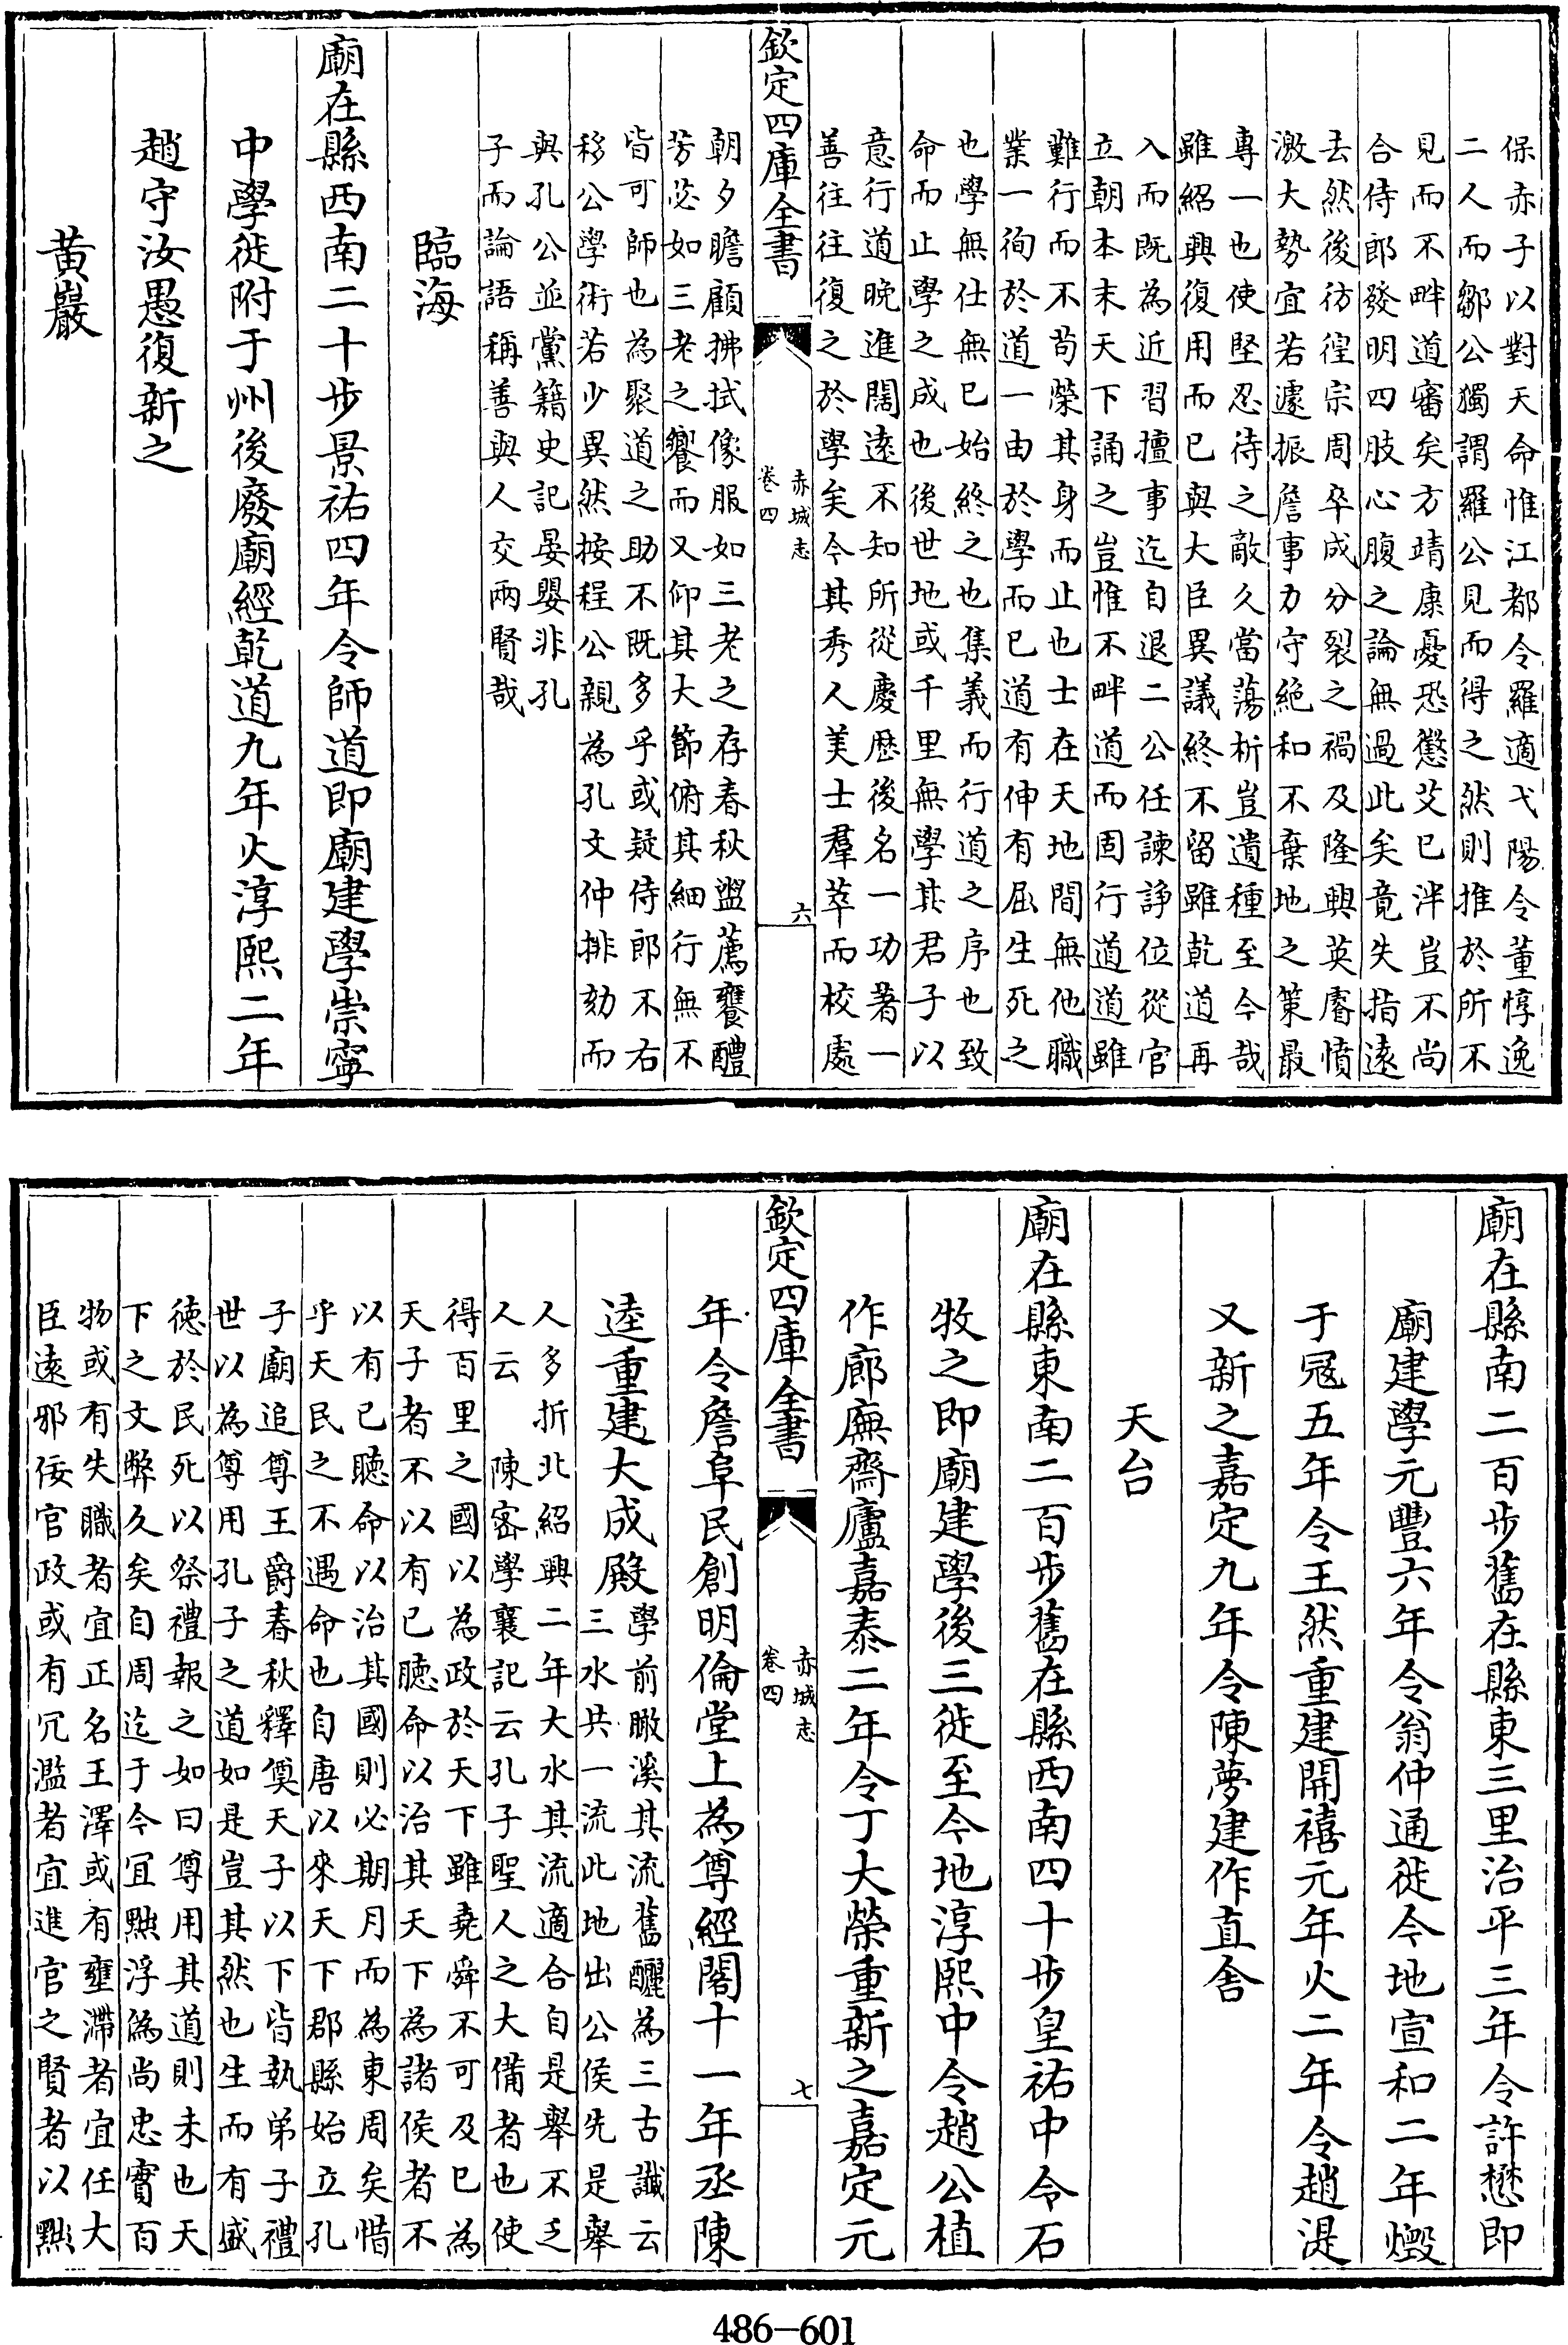 保赤子以對天命惟江都令羅適弋陽令董惇逸
二人而鄒公獨謂羅公見而得之然則推於所不
見而不畔道審矣方靖康憂恐懲艾已泮豈不尚
合侍郎發明四肢心腹之論無過此矣竟失指遠
去然後彷徨宗周卒成分裂之禍及隆興英睿憤
激大勢宜若遽振詹事力守絶和不棄地之策最
專一也使堅忍待之敵久當蕩析豈遺種至今哉
雖紹興復用而已與大臣異議終不留雖乾道再
入而既為近習擅事迄自退二公任諫諍位從官
立朝本末天下誦之豈惟不畔道而固行道道雖
難行而不苟榮其身而止也士在天地間無他職
業一徇於道一由於學而已道有伸有屈生死之
也學無仕無已始終之也集義而行道之序也致
命而止學之成也後世地或千里無學其君子以
意行道晚進闊遠不知所從慶歴後名一功著一
善往往復之於學矣今其秀人美士羣萃而校處
欽定四庫全書
赤城志
卷四
六
朝夕瞻顧拂拭像服如三老之存春秋盥薦饔醴
芳必如三老之饗而又仰其大節俯其細行無不
皆可師也為聚道之助不既多乎或疑侍郎不右
移公學術若少異然按程公親為孔文仲排劾而
與孔公並黨籍史記晏嬰非孔
子而論語稱善與人交兩賢哉
臨海
廟在縣西南二十步景祐四年令師道即廟建學崇寧
中學徙附于州後廢廟經乾道九年火淳熙二年
趙守汝愚復新之
黄巖
廟在縣南二百步舊在縣東三里治平三年令許懋即
廟建學元豐六年令翁仲通徙今地宣和二年燬
于冦五年令王然重建開禧元年火二年令趙湜
又新之嘉定九年令陳夢建作直舍
天台
廟在縣東南二百步舊在縣西南四十步皇祐中令石
牧之即廟建學後三徙至今地淳熙中令趙公植
作廊廡齋廬嘉泰二年令丁大榮重新之嘉定元
欽定四庫全書
赤城志
卷四
七
年令詹阜民創明倫堂上為尊經閣十一年丞陳
逵重建大成殿
學前瞰溪其流舊釃為三古讖云
三水共一流此地出公侯先是舉
人多折北紹興二年大水其流適合自是舉不乏
人云 陳密學襄記云孔子聖人之大備者也使
得百里之國以為政於天下雖堯舜不可及已為
天子者不以有已聴命以治其天下為諸侯者不
以有已聽命以治其國則必期月而為東周矣惜
乎天民之不遇命也自唐以來天下郡縣始立孔
子廟追尊王爵春秋釋奠天子以下皆執弟子禮
世以為尊用孔子之道如是豈其然也生而有盛
徳於民死以祭禮報之如曰尊用其道則未也天
下之文弊久矣自周迄于今冝黜浮為尚忠實百
物或有失職者宜正名王澤或有壅滯者宜任大
臣遠邪佞官政或有冗濫者宜進官之賢者以黜
486-601